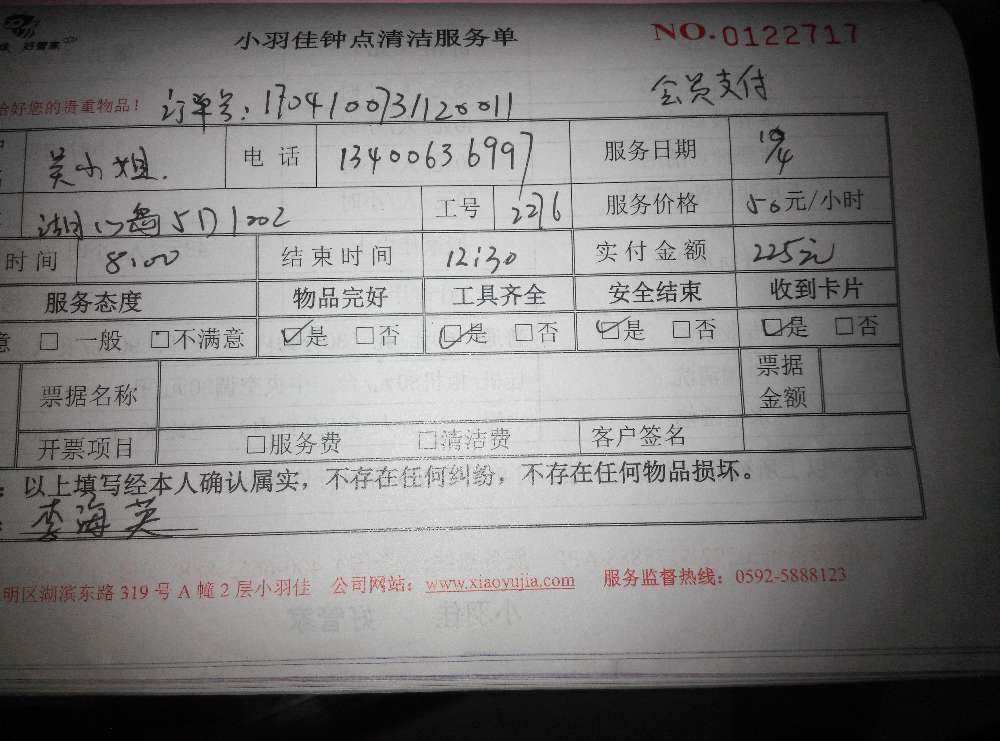 好管家
小羽佳钟点清洁服务单 NO.0122717
您的贵重物品！ 订单号：1704100731120011 会员支付
吴小姐. 电话 13400636997 服务日期 10/4
湖心岛5D1002 工号 2276 服务价格 50元/小时
时间 8:00 结束时间 12:30 实付金额 225元
服务态度 物品完好 工具齐全 安全结束 收到卡片
意 □ 一般 □不满意 ☑是 □否 ☑是 □否 ☑是 □否 ☑是 □否
票据名称 票据金额
开票项目 □服务费 □清洁费 客户签名
：以上填写经本人确认属实，不存在任何纠纷，不存在任何物品损坏。
：李海英
明区湖滨东路319号A幢2层小羽佳 公司网站：www.xiaoyujia.com 服务监督热线：0592-5888123